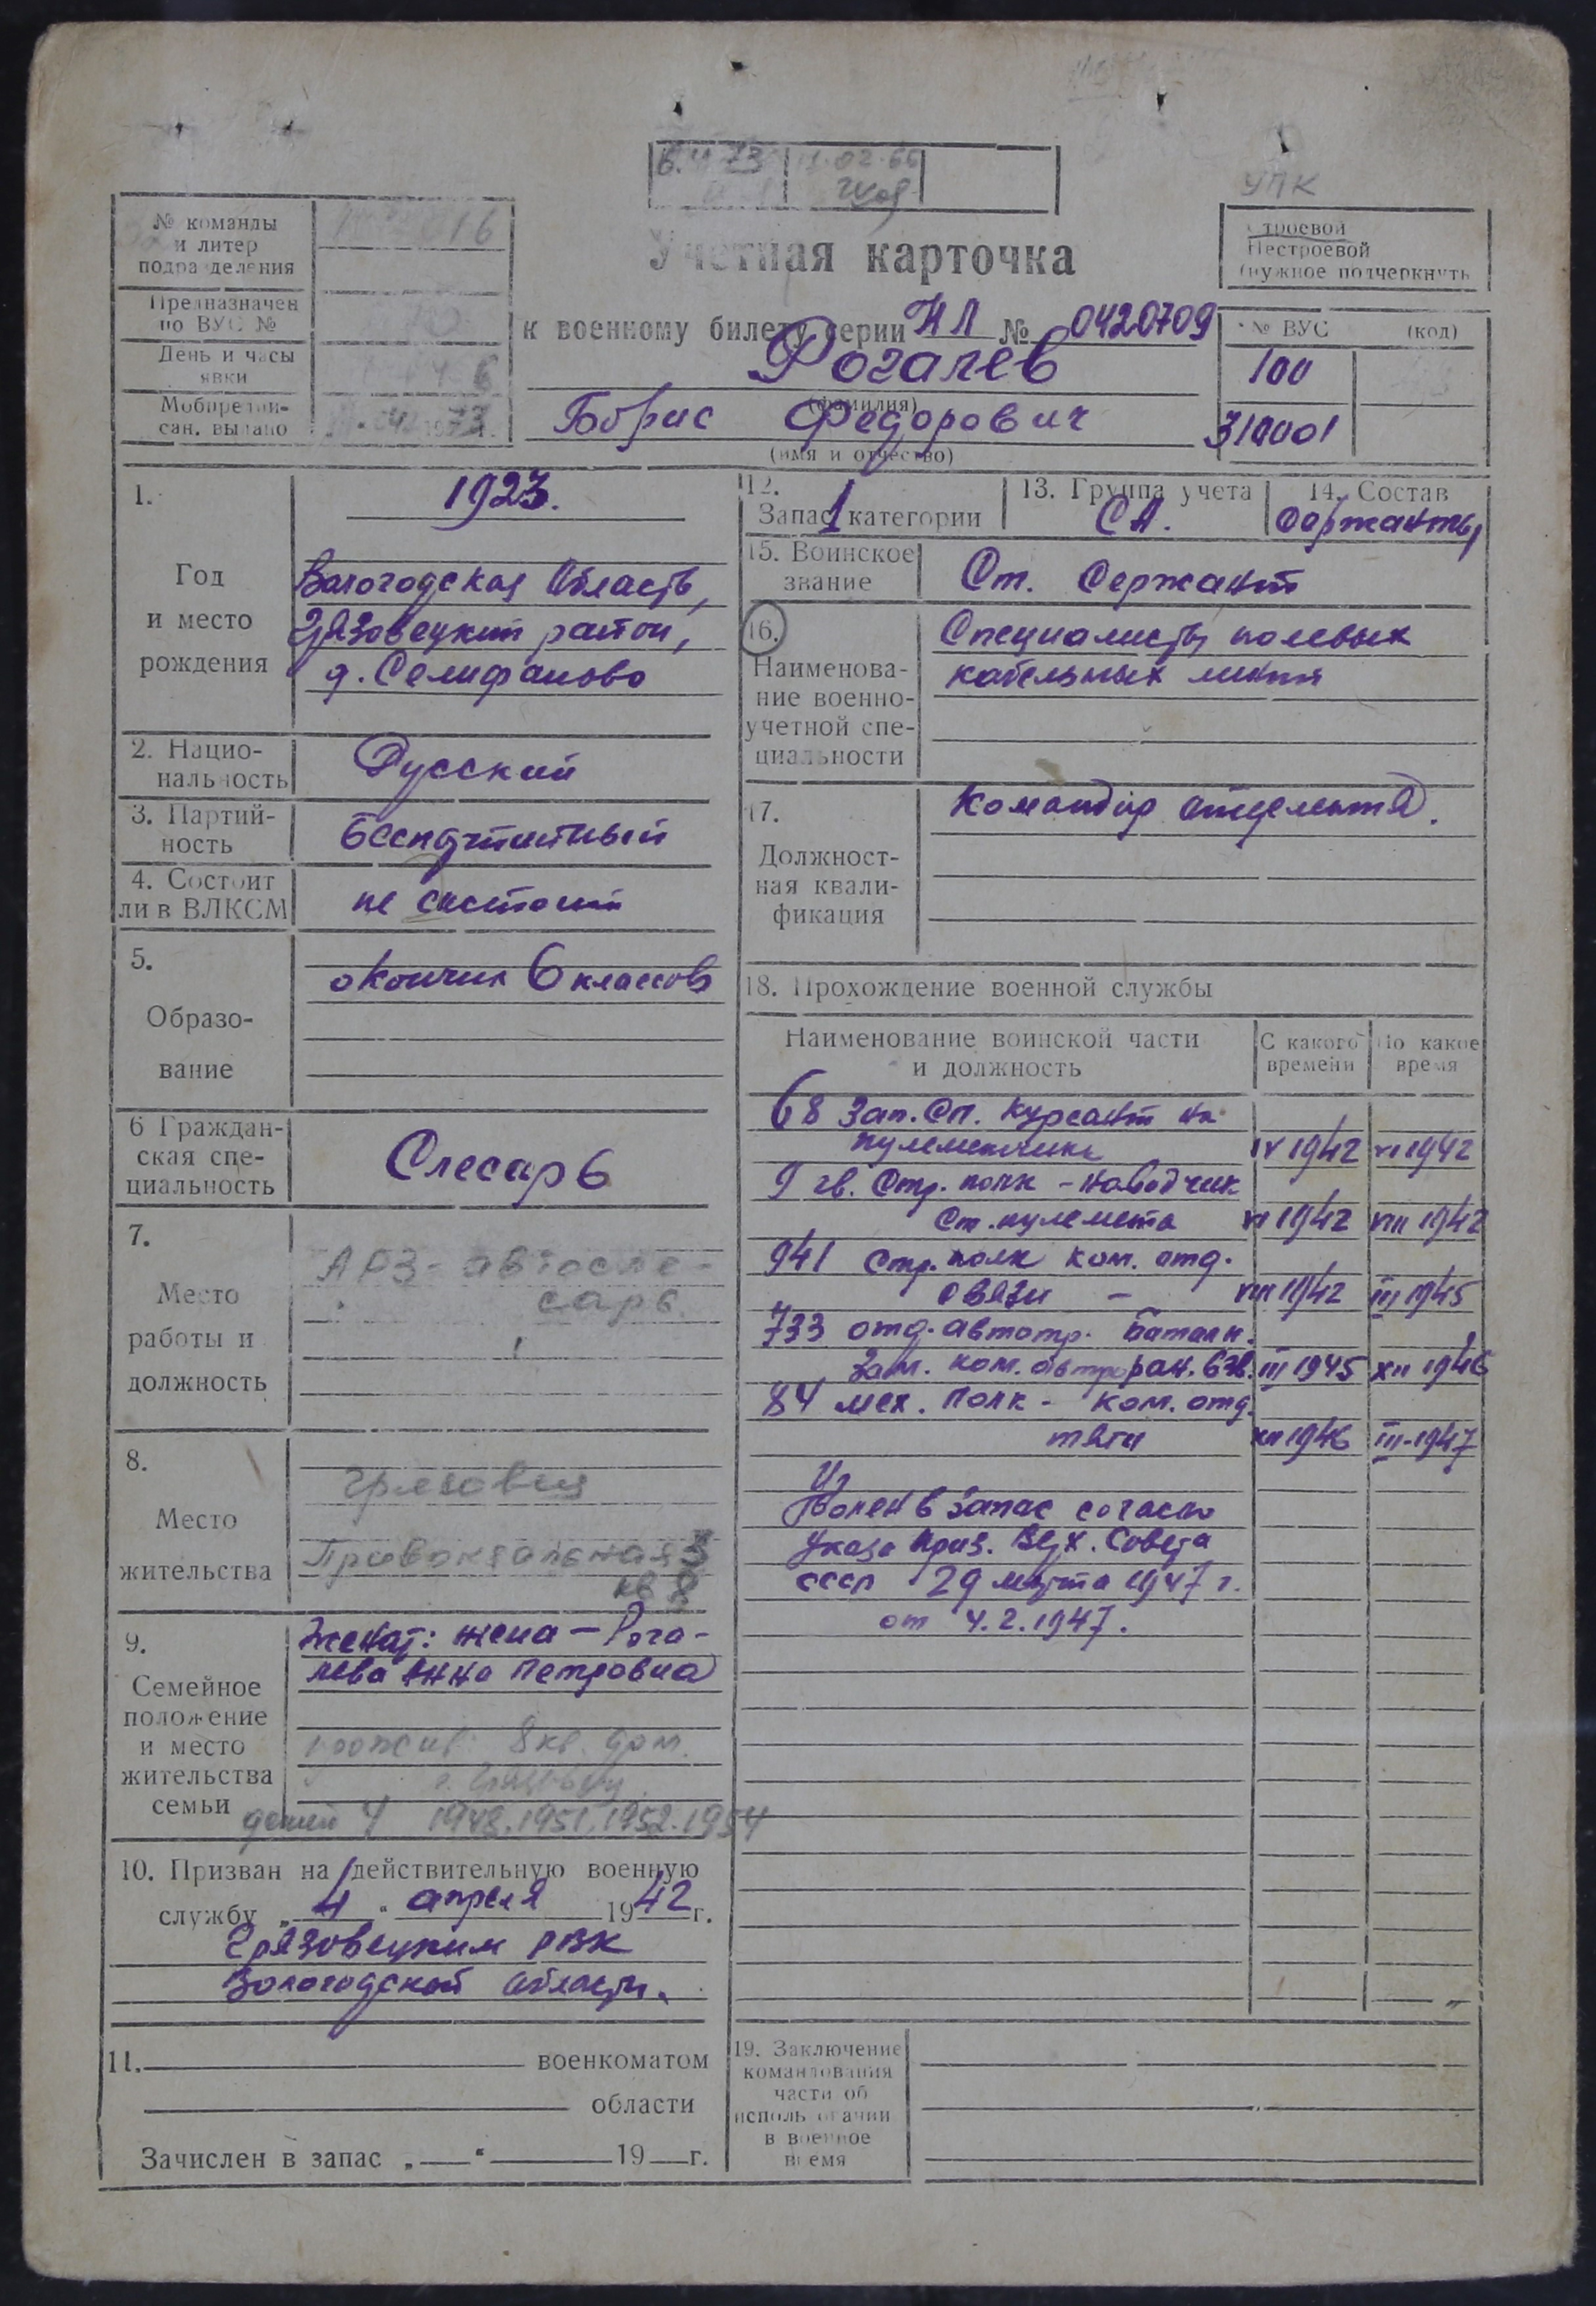 УПК
№ команды
и литер
подразделения
Предназначен
по ВУС №
День и часы
явки
Мобпредпи-
сан. выдано
Учетная карточка
к военному билету серии НЛ № 0420709
Рогалев
(фамилия)
Борис Федорович
(имя и отчество)
Строевой
Нестроевой
(нужное подчеркнуть)
№ ВУС (код)
100
310001
1. Год
и место
рождения
1923.
Вологодская область,
Грязовецкий район,
д. Селифаново
2. Нацио-
нальность
Русский
3. Партий-
ность
беспартийный
4. Состоит
ли в ВЛКСМ
не состоит
5.
Образо-
вание
окончил 6 классов
6 Граждан-
ская спе-
циальность
Слесарь
7.
Место
работы и
должность
АРЗ - автосле-
сарь
8.
Место
жительства
Грязовец
Привокзальная 3
кв 8
9.
Семейное
положение
и место
жительства
семьи
Женат: жена - Рога-
лева Анна Петровна
прожив. 8 кв. дом.
г. Грязовец
детей 4 1948. 1951. 1952. 1954
10. Призван на действительную военную
службу „4“ апреля 1942 г.
Грязовецким РВК
Вологодской области.
11. военкоматом
области
Зачислен в запас „ “ 19 г.
12.
Запас 1 категории
13. Группа учета
СА.
14. Состав
сержанты
15. Воинское
звание
Ст. Сержант
16.
Наименова-
ние военно-
учетной спе-
циальности
Специалисты полевых
кабельных линий
17.
Должност-
ная квали-
фикация
Командир отделения.
18. Прохождение военной службы
Наименование воинской части
и должность
С какого
времени
По какое
время
68 Зап. Сп. Курсант на
пулеметчика IV 1942 VI 1942
9 гв. Стр. полк - наводчик
Ст. пулемета VI 1942 VIII 1942
941 Стр. полк ком. отд.
связи - VIII 1942 III 1945
733 отд. автотр. батальн.
Зам. ком. автором. взв. III 1945 XII 1946
84 мех. полк - ком. отд.
тяги XII 1946 III-1947
Уволен в запас согласно
Указа През. Верх. Совета
СССР 29 марта 1947 г.
от 4.2.1947.
19. Заключение
командования
части об
использовании
в военное
время